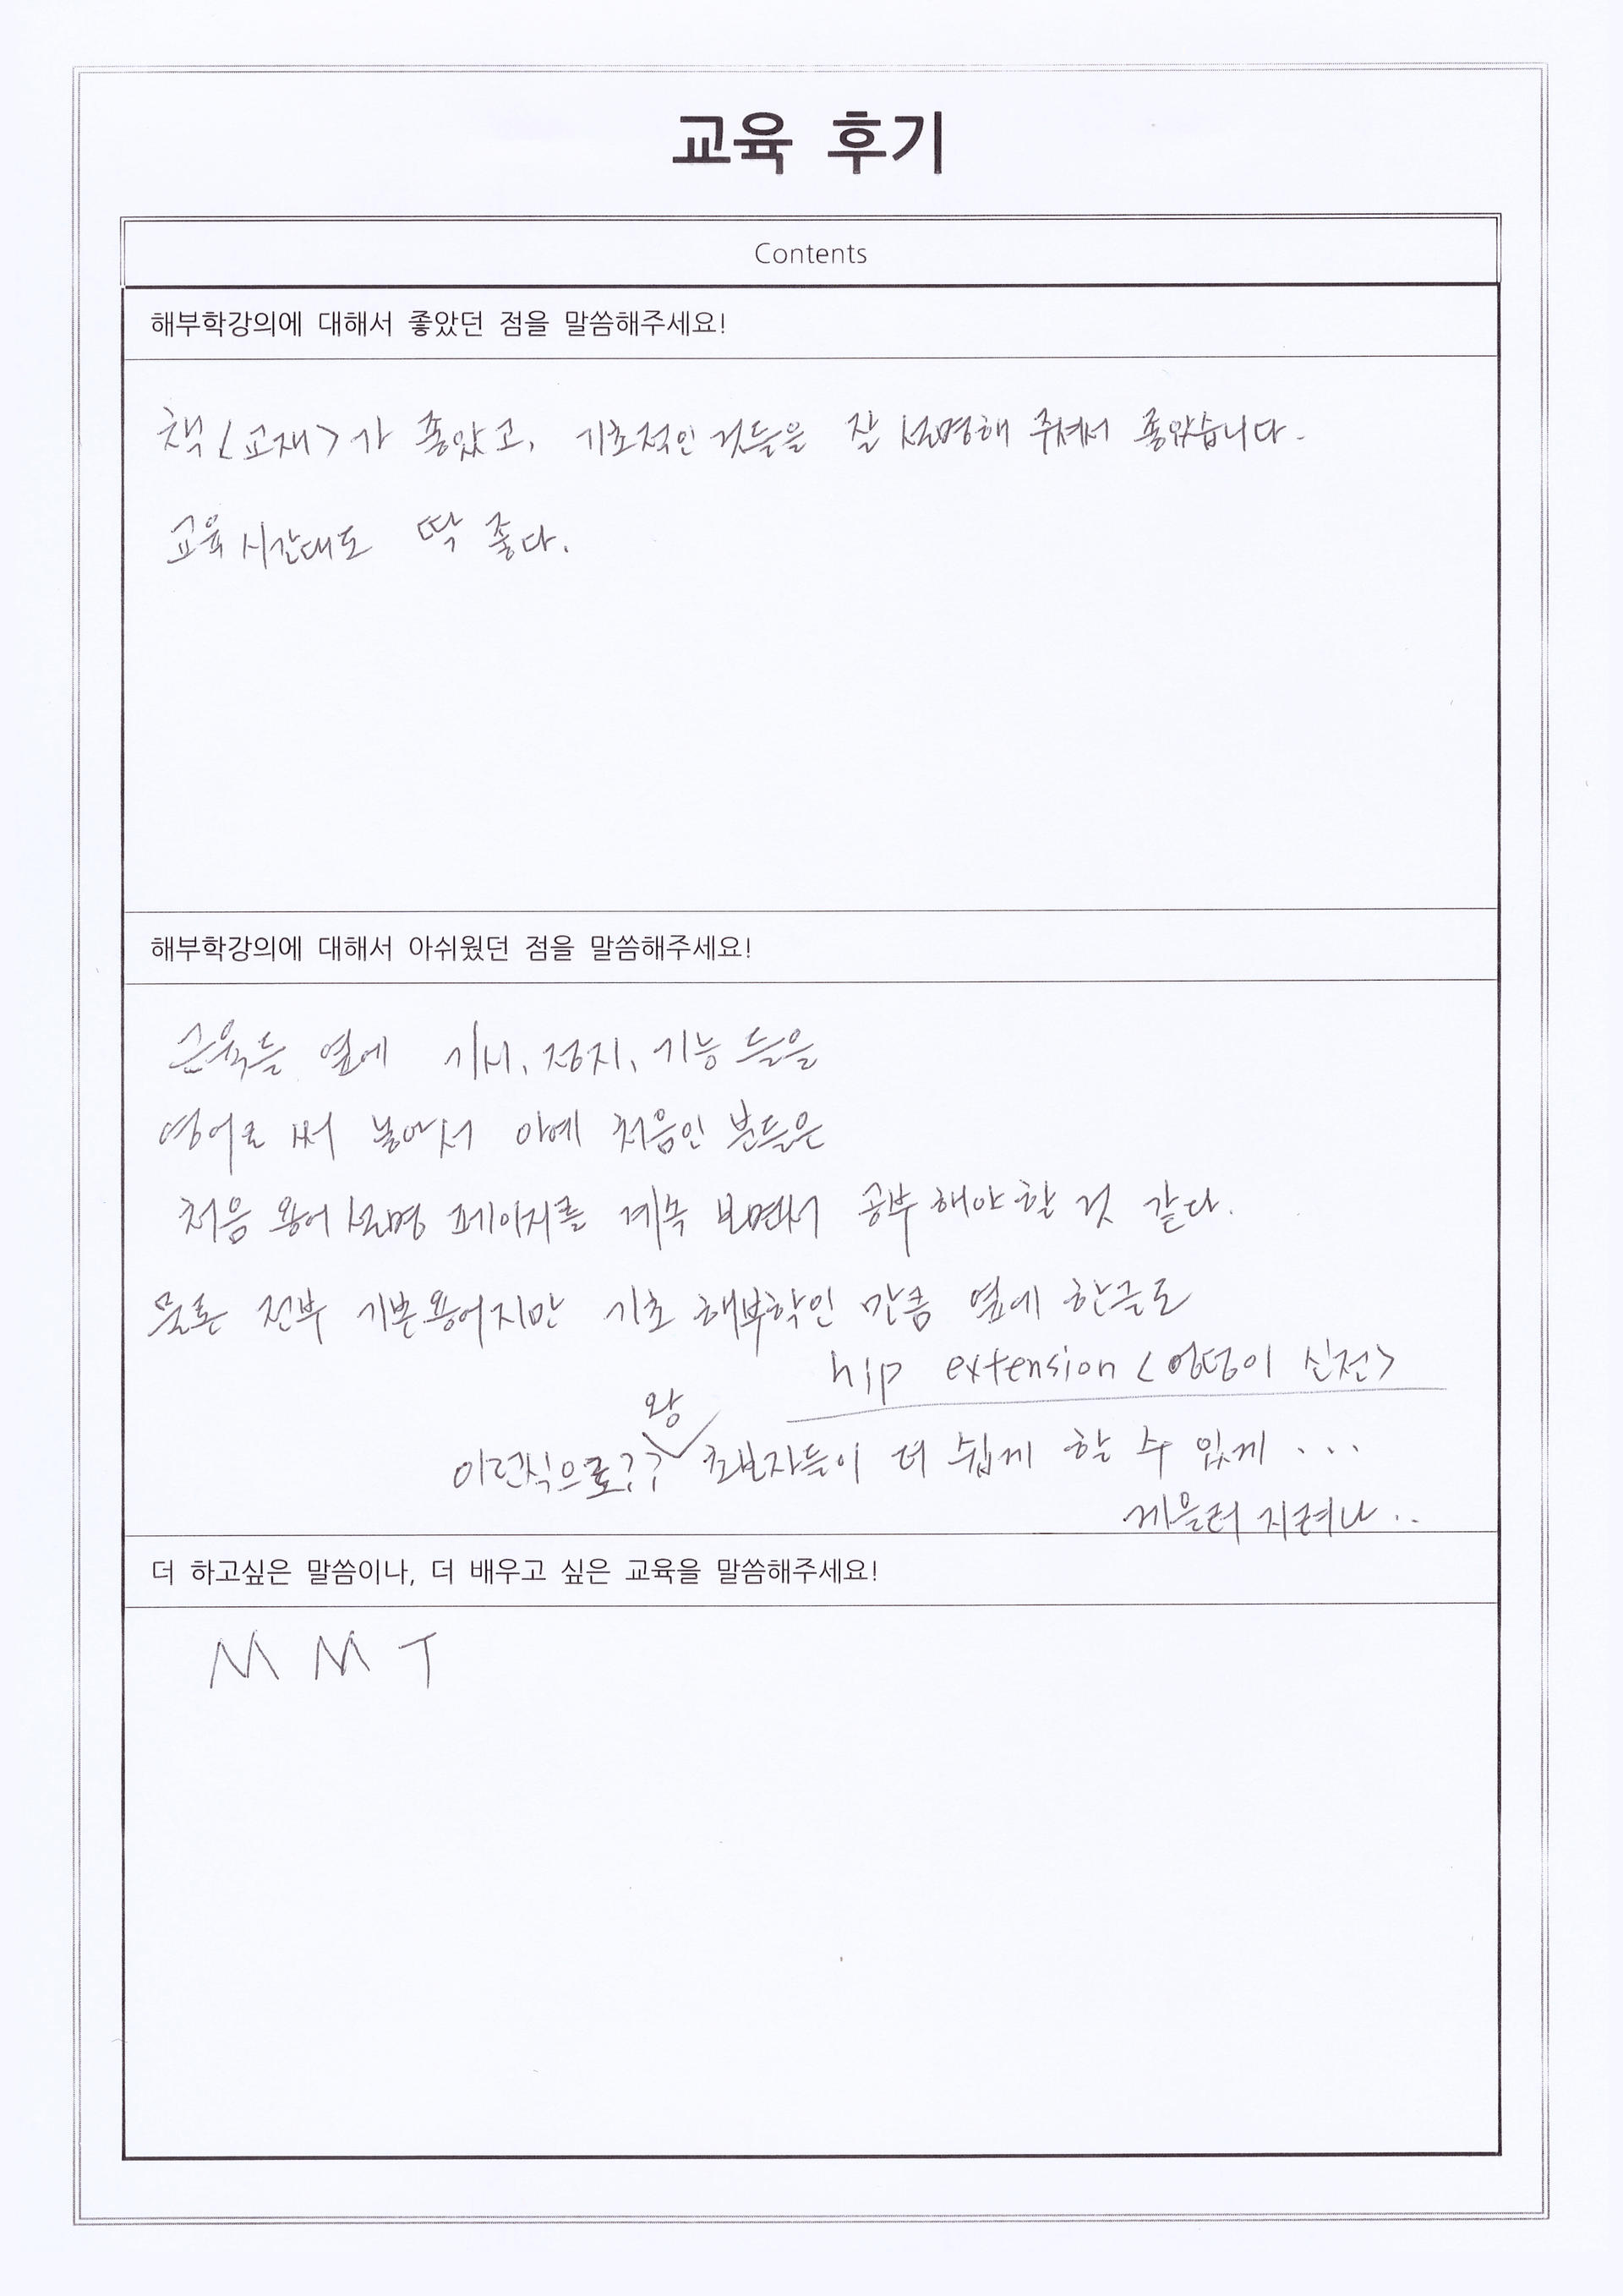 교육 후기
Contents
해부학강의에 대해서 좋았던 점을 말씀해주세요!
책<교재>가 좋았고, 기초적인 것들을 잘 설명해 주셔서 좋았습니다.
교육시간대도 딱 좋다.
해부학강의에 대해서 아쉬웠던 점을 말씀해주세요!
근육들 옆에 기시, 정지, 기능 들을
영어로 써 놓아서 아예 처음인 분들은
처음 용어 설명 페이지를 계속 보면서 공부해야 할 것 같다.
물론 전부 기본용어지만 기초 해부학인 만큼 옆에 한글로
hip extension <엉덩이 신전>
왕
이런식으로?? 초보자들이 더 쉽게 할 수 있게 ...
게을러 지려나..
더 하고싶은 말씀이나, 더 배우고 싶은 교육을 말씀해주세요!
M M T